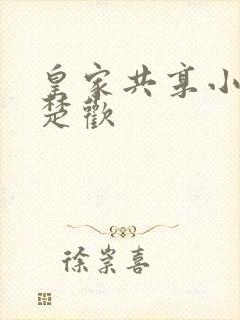 皇家共享小
楚歡
徐崇喜